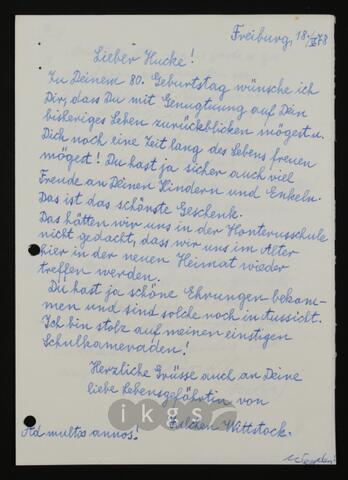 Freiburg, 18. 78
Lieber Hucke!
Zu Deinem 80. Geburtstag wünsche ich
Dir, dass Du mit Genugtuung auf Dein
bisheriges Leben zurückblicken mögest u.
Dich noch eine Zeit lang des Lebens freuen
mögest! Du hast ja sicher auch viel
Freude an Deinen Kindern und Enkeln.
Das ist das schönste Geschenk.
Das hätten wir uns in der Honterusschule
nicht gedacht, dass wir uns im Alter
hier in der neuen Heimat wieder
treffen werden.
Du hast ja schöne Ehrungen bekom-
men und sind solche noch in Aussicht.
Ich bin stolz auf meinen einstigen
Schulkameraden!
Herzliche Grüsse auch an Deine
liebe Lebensgefährtin von
ikgs
Wittstock.
Ad multos annos!